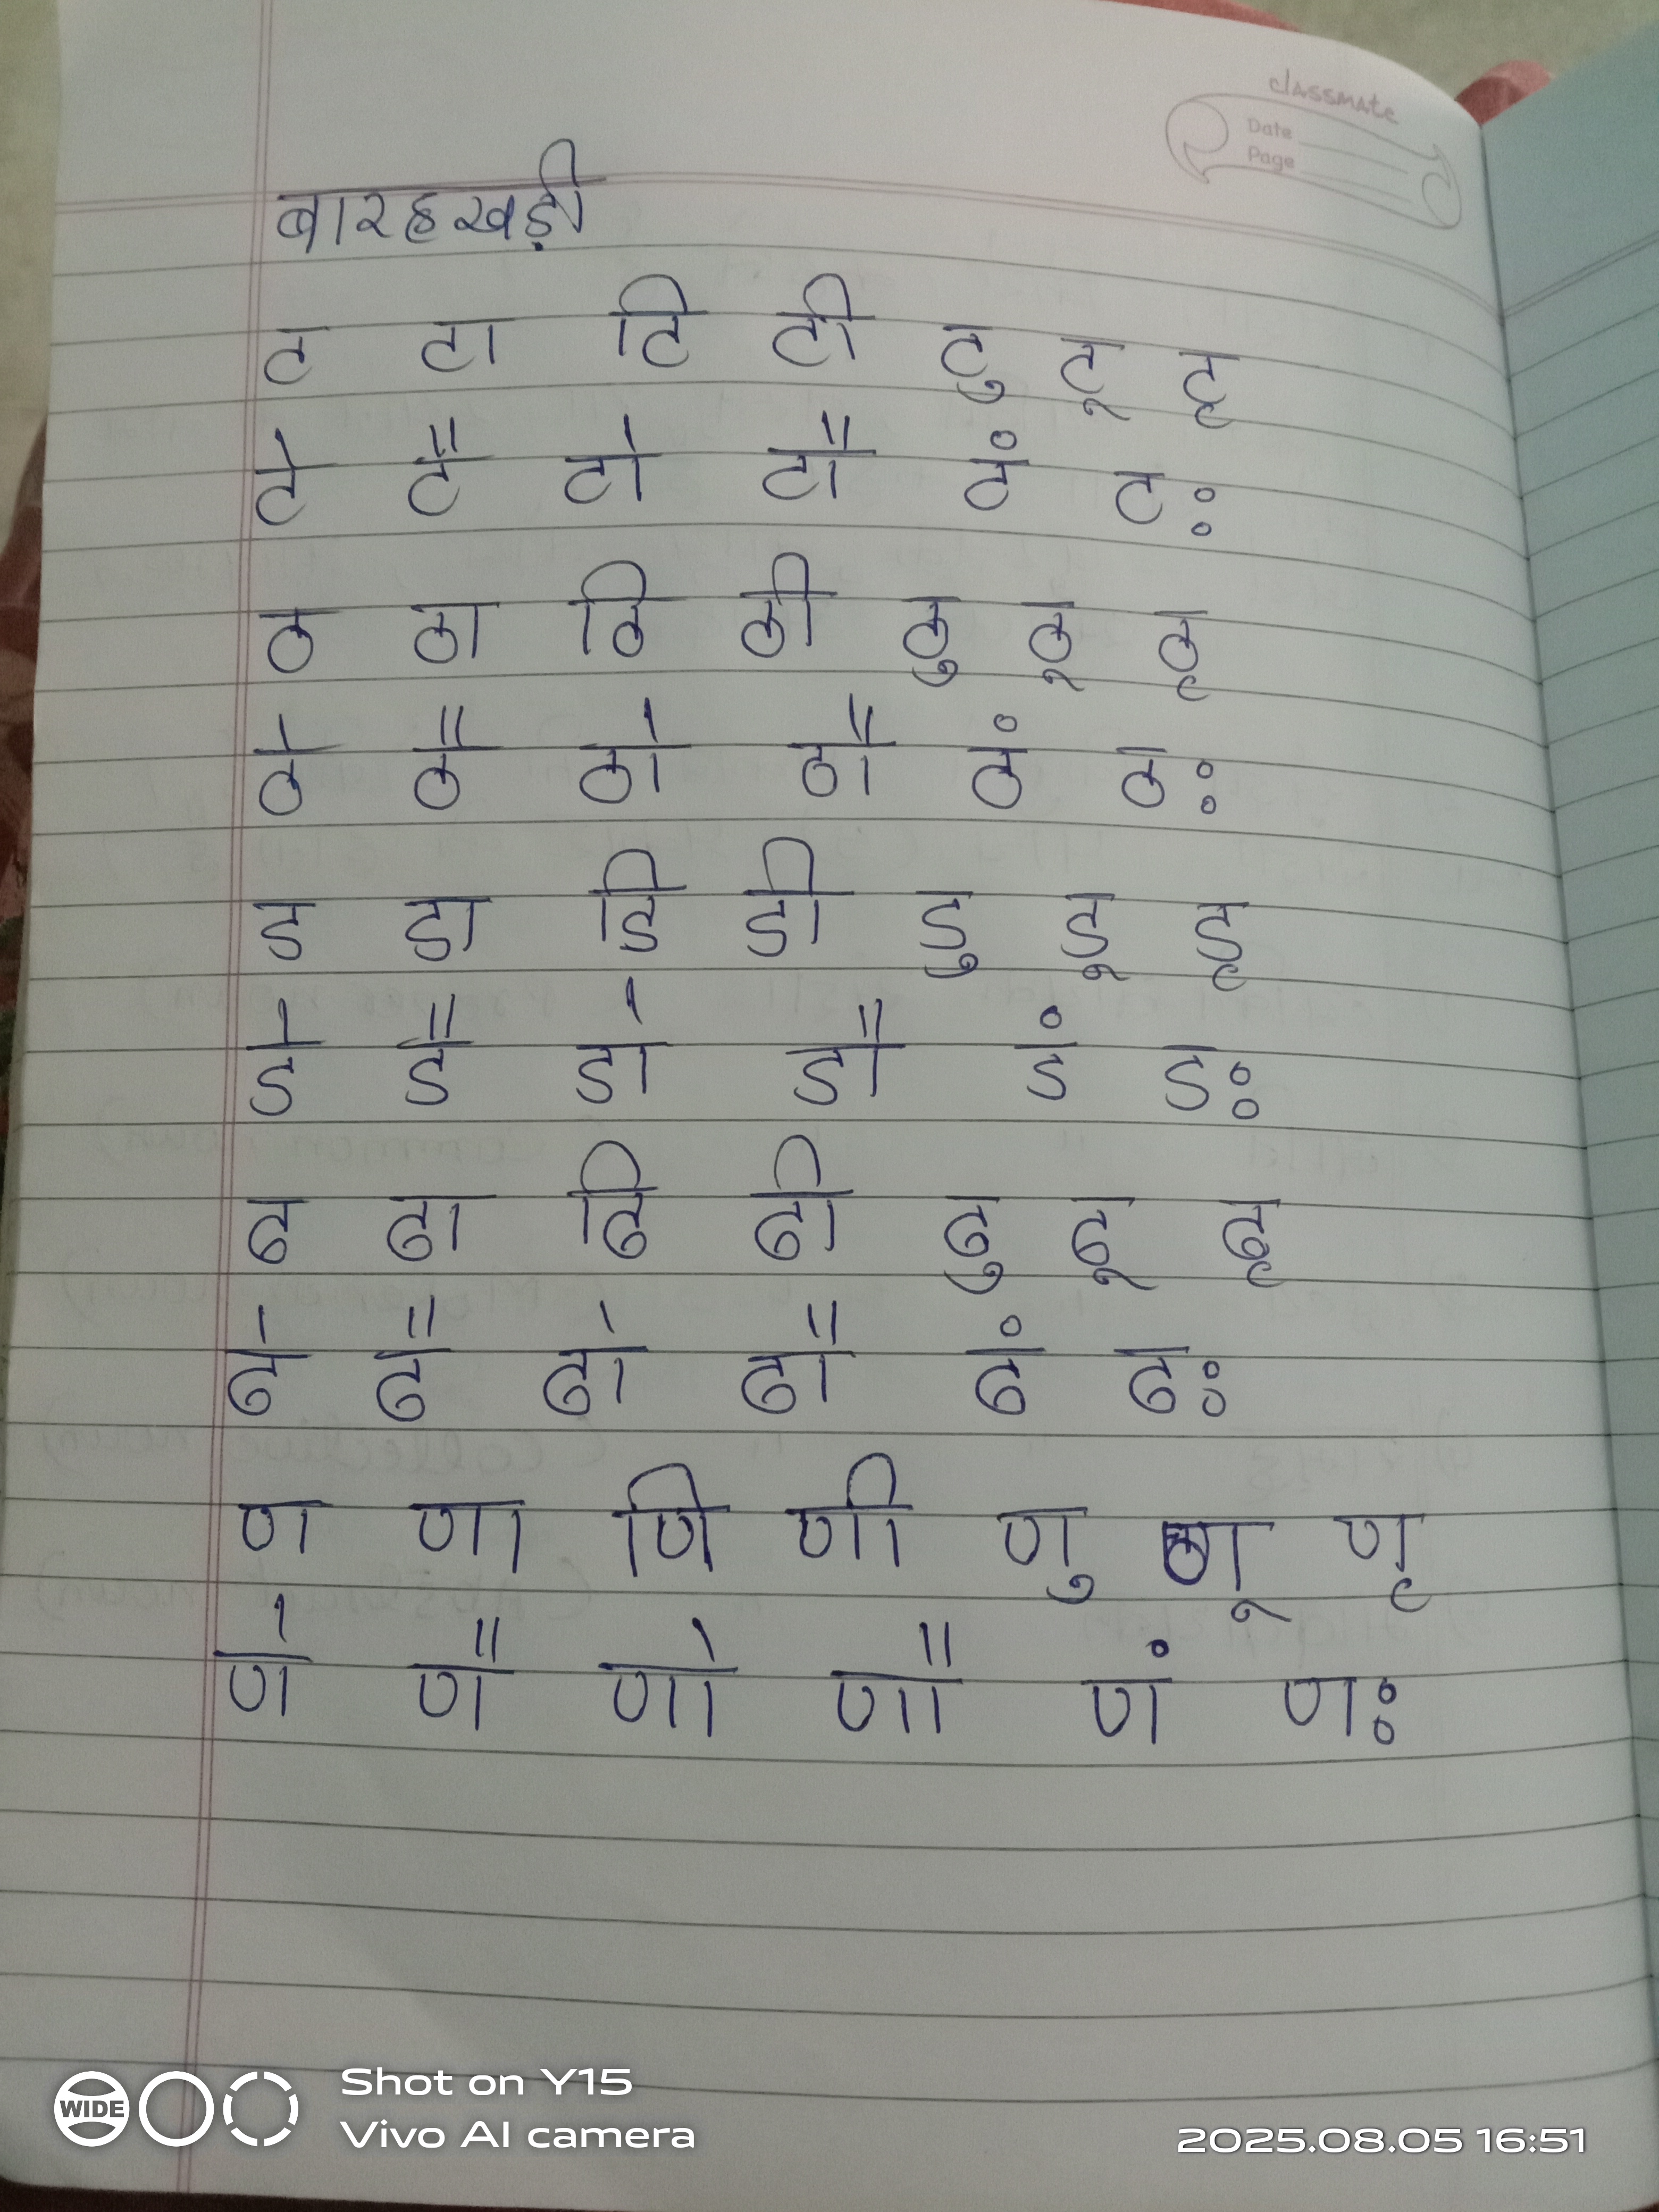 classmate
Date
Page
बारहखड़ी
ट टा टि टी टु टू टृ
टे टै टो टौ टं टः
ठ ठा ठि ठी ठु ठू ठृ
ठे ठै ठो ठौ ठं ठः
ड डा डि डी डु डू डृ
डे डै डो डौ डं डः
ढ ढा ढि ढी ढु ढू ढृ
ढे ढै ढो ढौ ढं ढः
ण णा णि णी णु णू णृ
णे णै णो णौ णं णः
WIDE
Shot on Y15
Vivo AI camera
2025.08.05 16:51